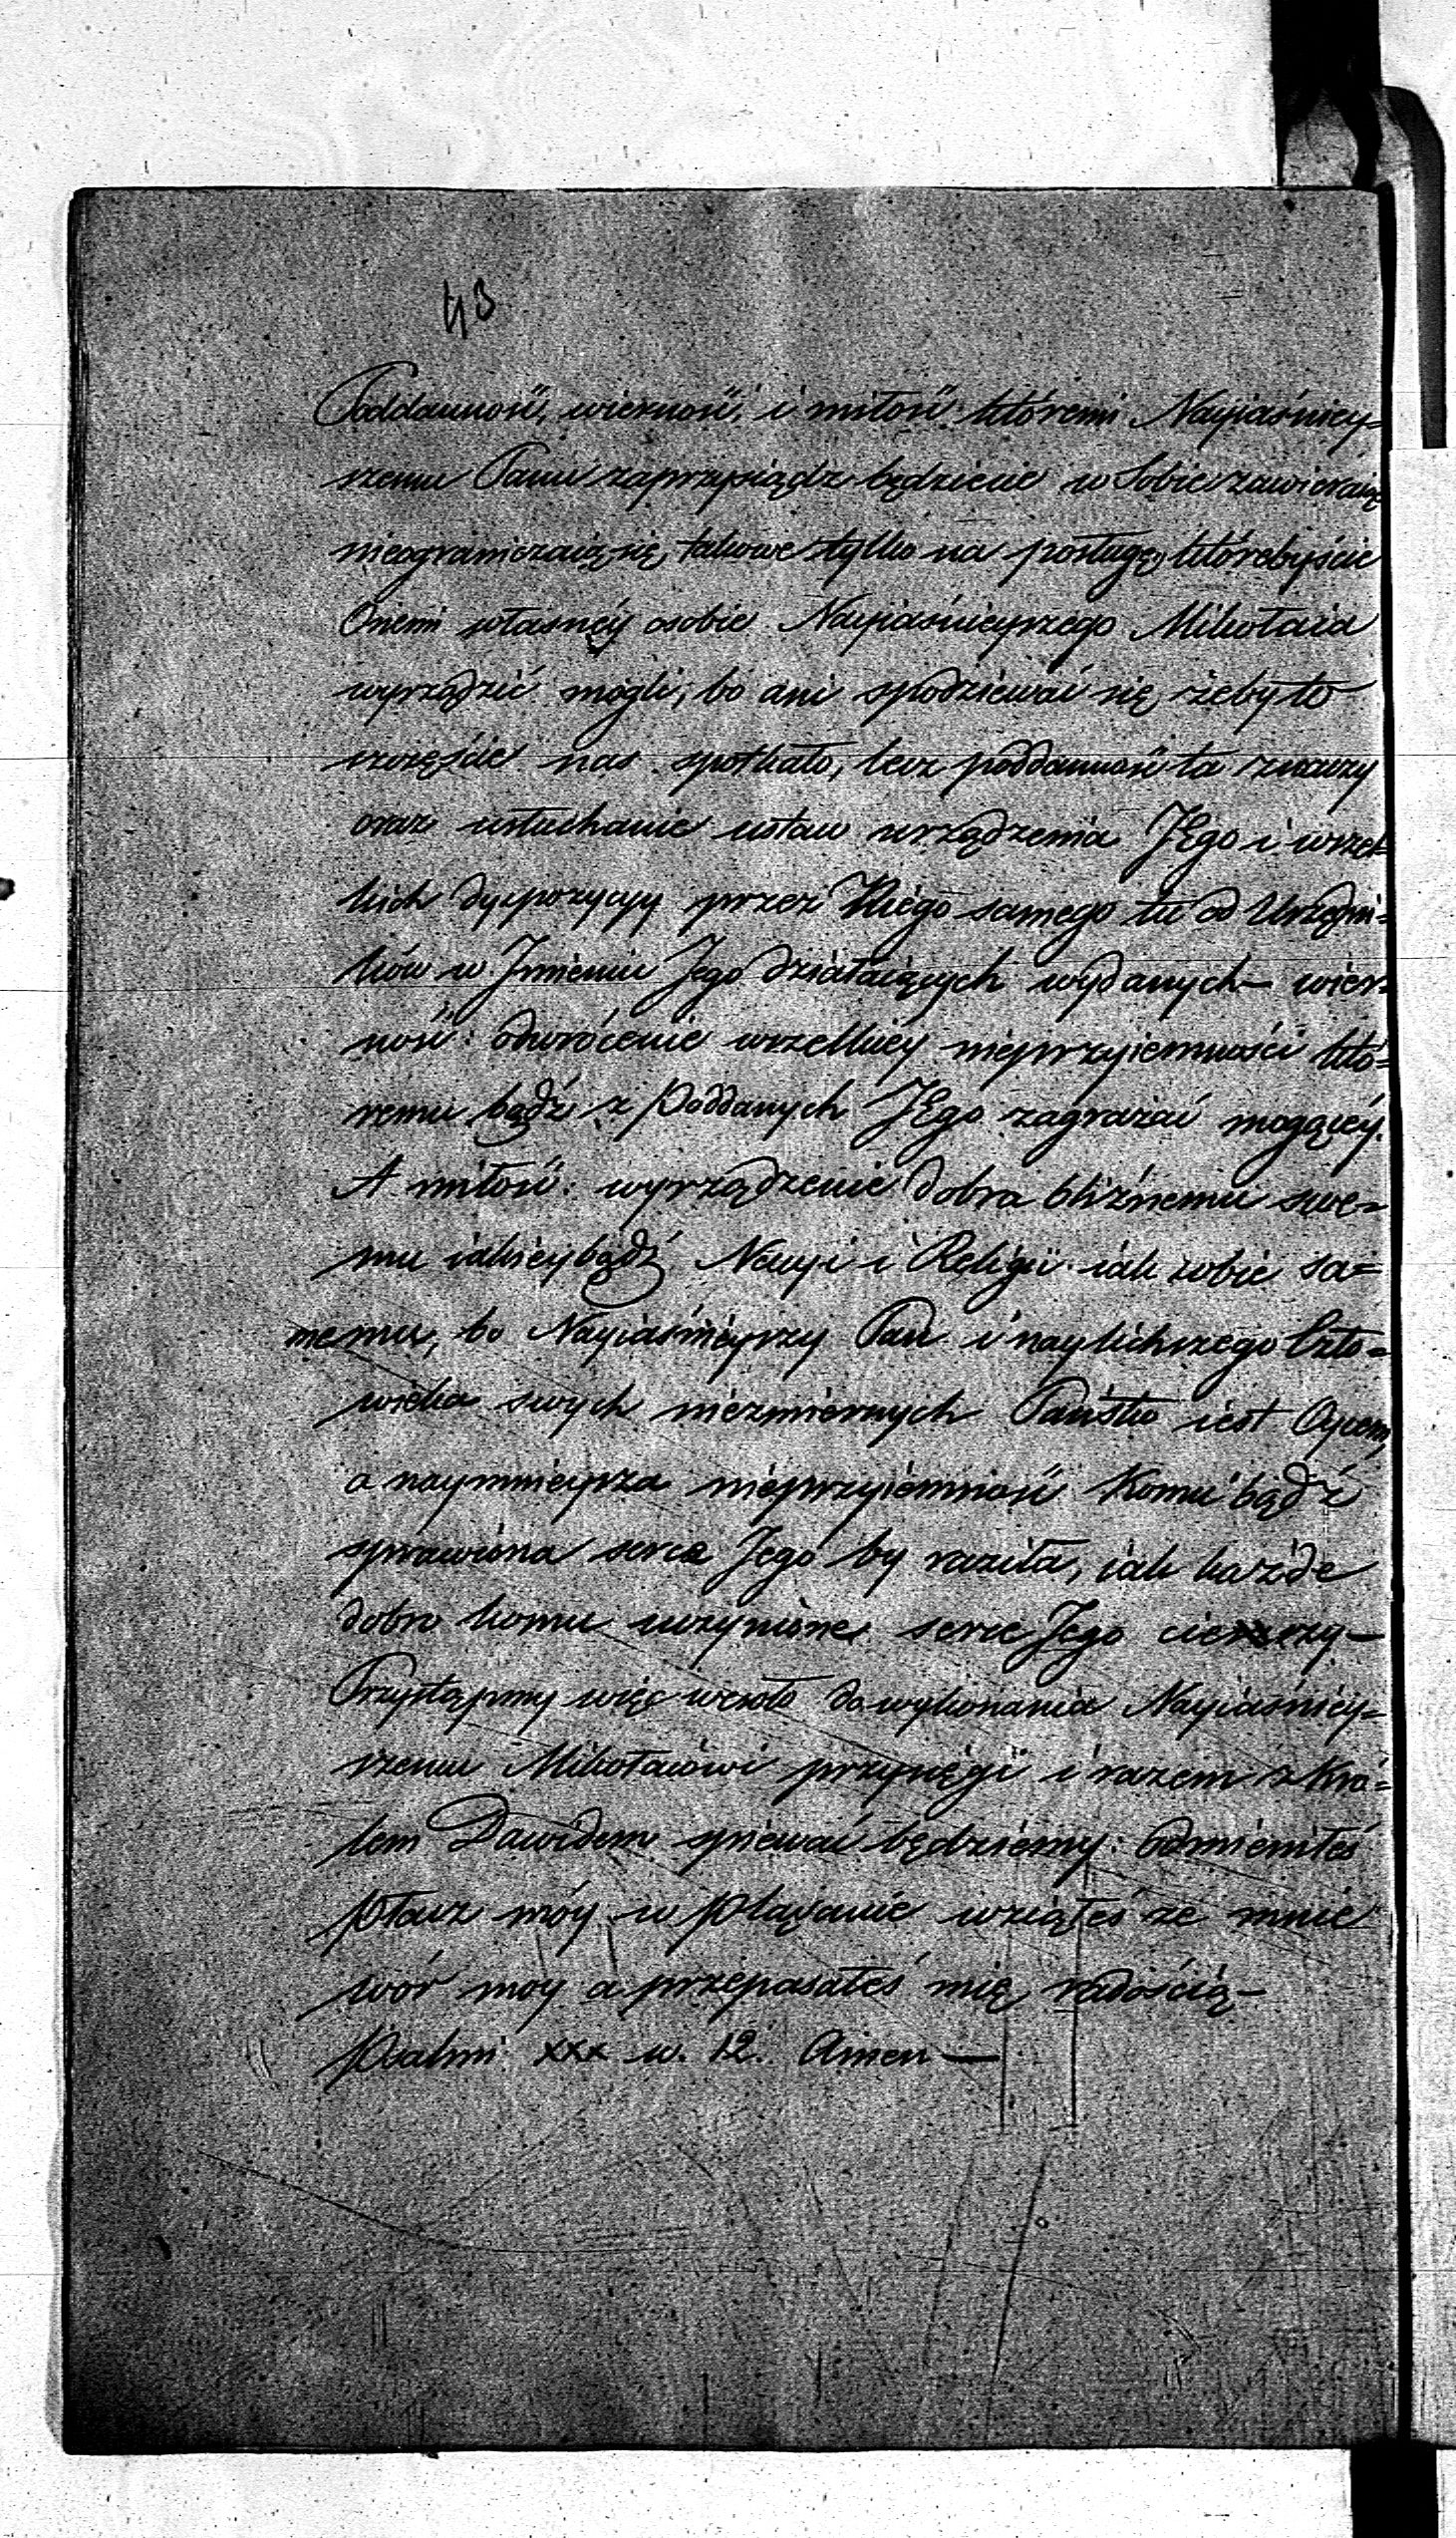 43
Poddannosć, wiernosć, i miłosć: któremi Nayiaśniey=
szemu Panu zaprzysiądz będziecie w sobie zawieraią
nieograniczaią się, takowe tylko na posługę, którebyście
Onemi własnéy osobie Nayiaśnieyszego Mikołaia
wyrządzić mogli; bo ani spodziewać się żeby to
szczęście nas spotkało, lecz poddannosć ta znaczy
oraz usłuchanie ustaw urządzenia JEgo i wszel=
kich dyspozycyy przez Niego samego tu od Urzędni=
ków w Jmieniu Jego działaiących wydanych — wier=
nosć: odwrócenie wszelkiey nieprzyiemności któ=
remu bądź z Poddanych JEgo zagrażać mogącéy.
A miłosć: wyrządzenie dobra bliźniemu swe=
mu iakieybądź Nacyi i Religii iak sobie sa=
memu, bo Nayiaśnieyszy Pan i naylichszego Czło=
wieka swych niezmiernych Państw iest Oycem,
a naymnieysza nieprzyiemnosć komu bądź
sprawiona serce Jego by raziła, iak każde
dobro komu uczynione serce Jego cieszy —
Przystąpmy więc wesoło do wykonania Nayiaśniey=
szemu Mikołaiowi przysięgi i razem z Kró=
lem Dawidem spiewać będziemy: Odmieniłeś
płacz móy w pląsanie wziąłeś ze mnie
wór moy a przepasałeś mię radością —
Psalm XXX w. 12. Amen —